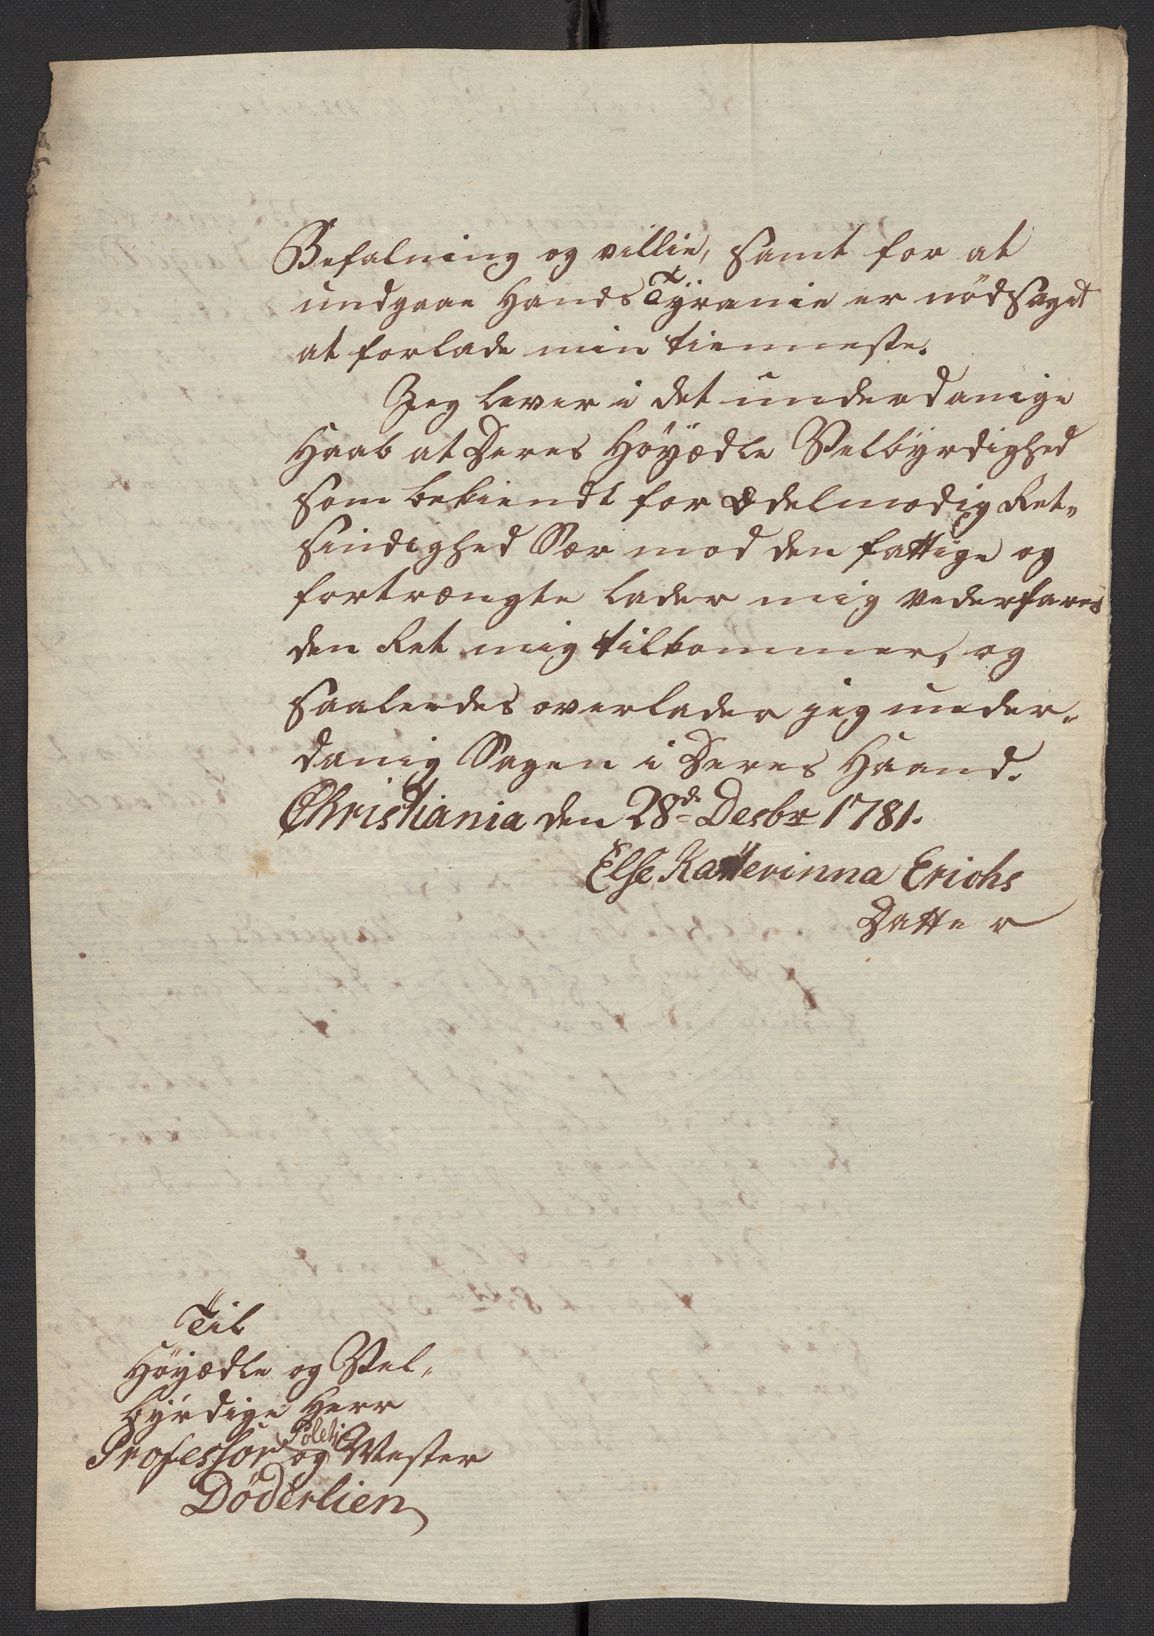 Befalning og villie, samt for at
undgaae Hands Tÿranie er nödsaget
at forlade min tienneste.
Jeg lever i det underdanige
Haab at Deres Höÿædle Velbÿrdighed
som bekiendt for Ædelmodig Ret„
sindighed Sær mod den fattige og
fortrængte lader mig vederfares
den Ret mig tilkommer, og
saaleedes overlader jeg under„
danig Sagen i Deres Haand.
Christiania den 28de Desbr 1781.
Else Katterinna Erichs
Datter
Til
Höÿædle og Vel„
bÿrdige Herr
Professor og Politi Mester
Döderlien